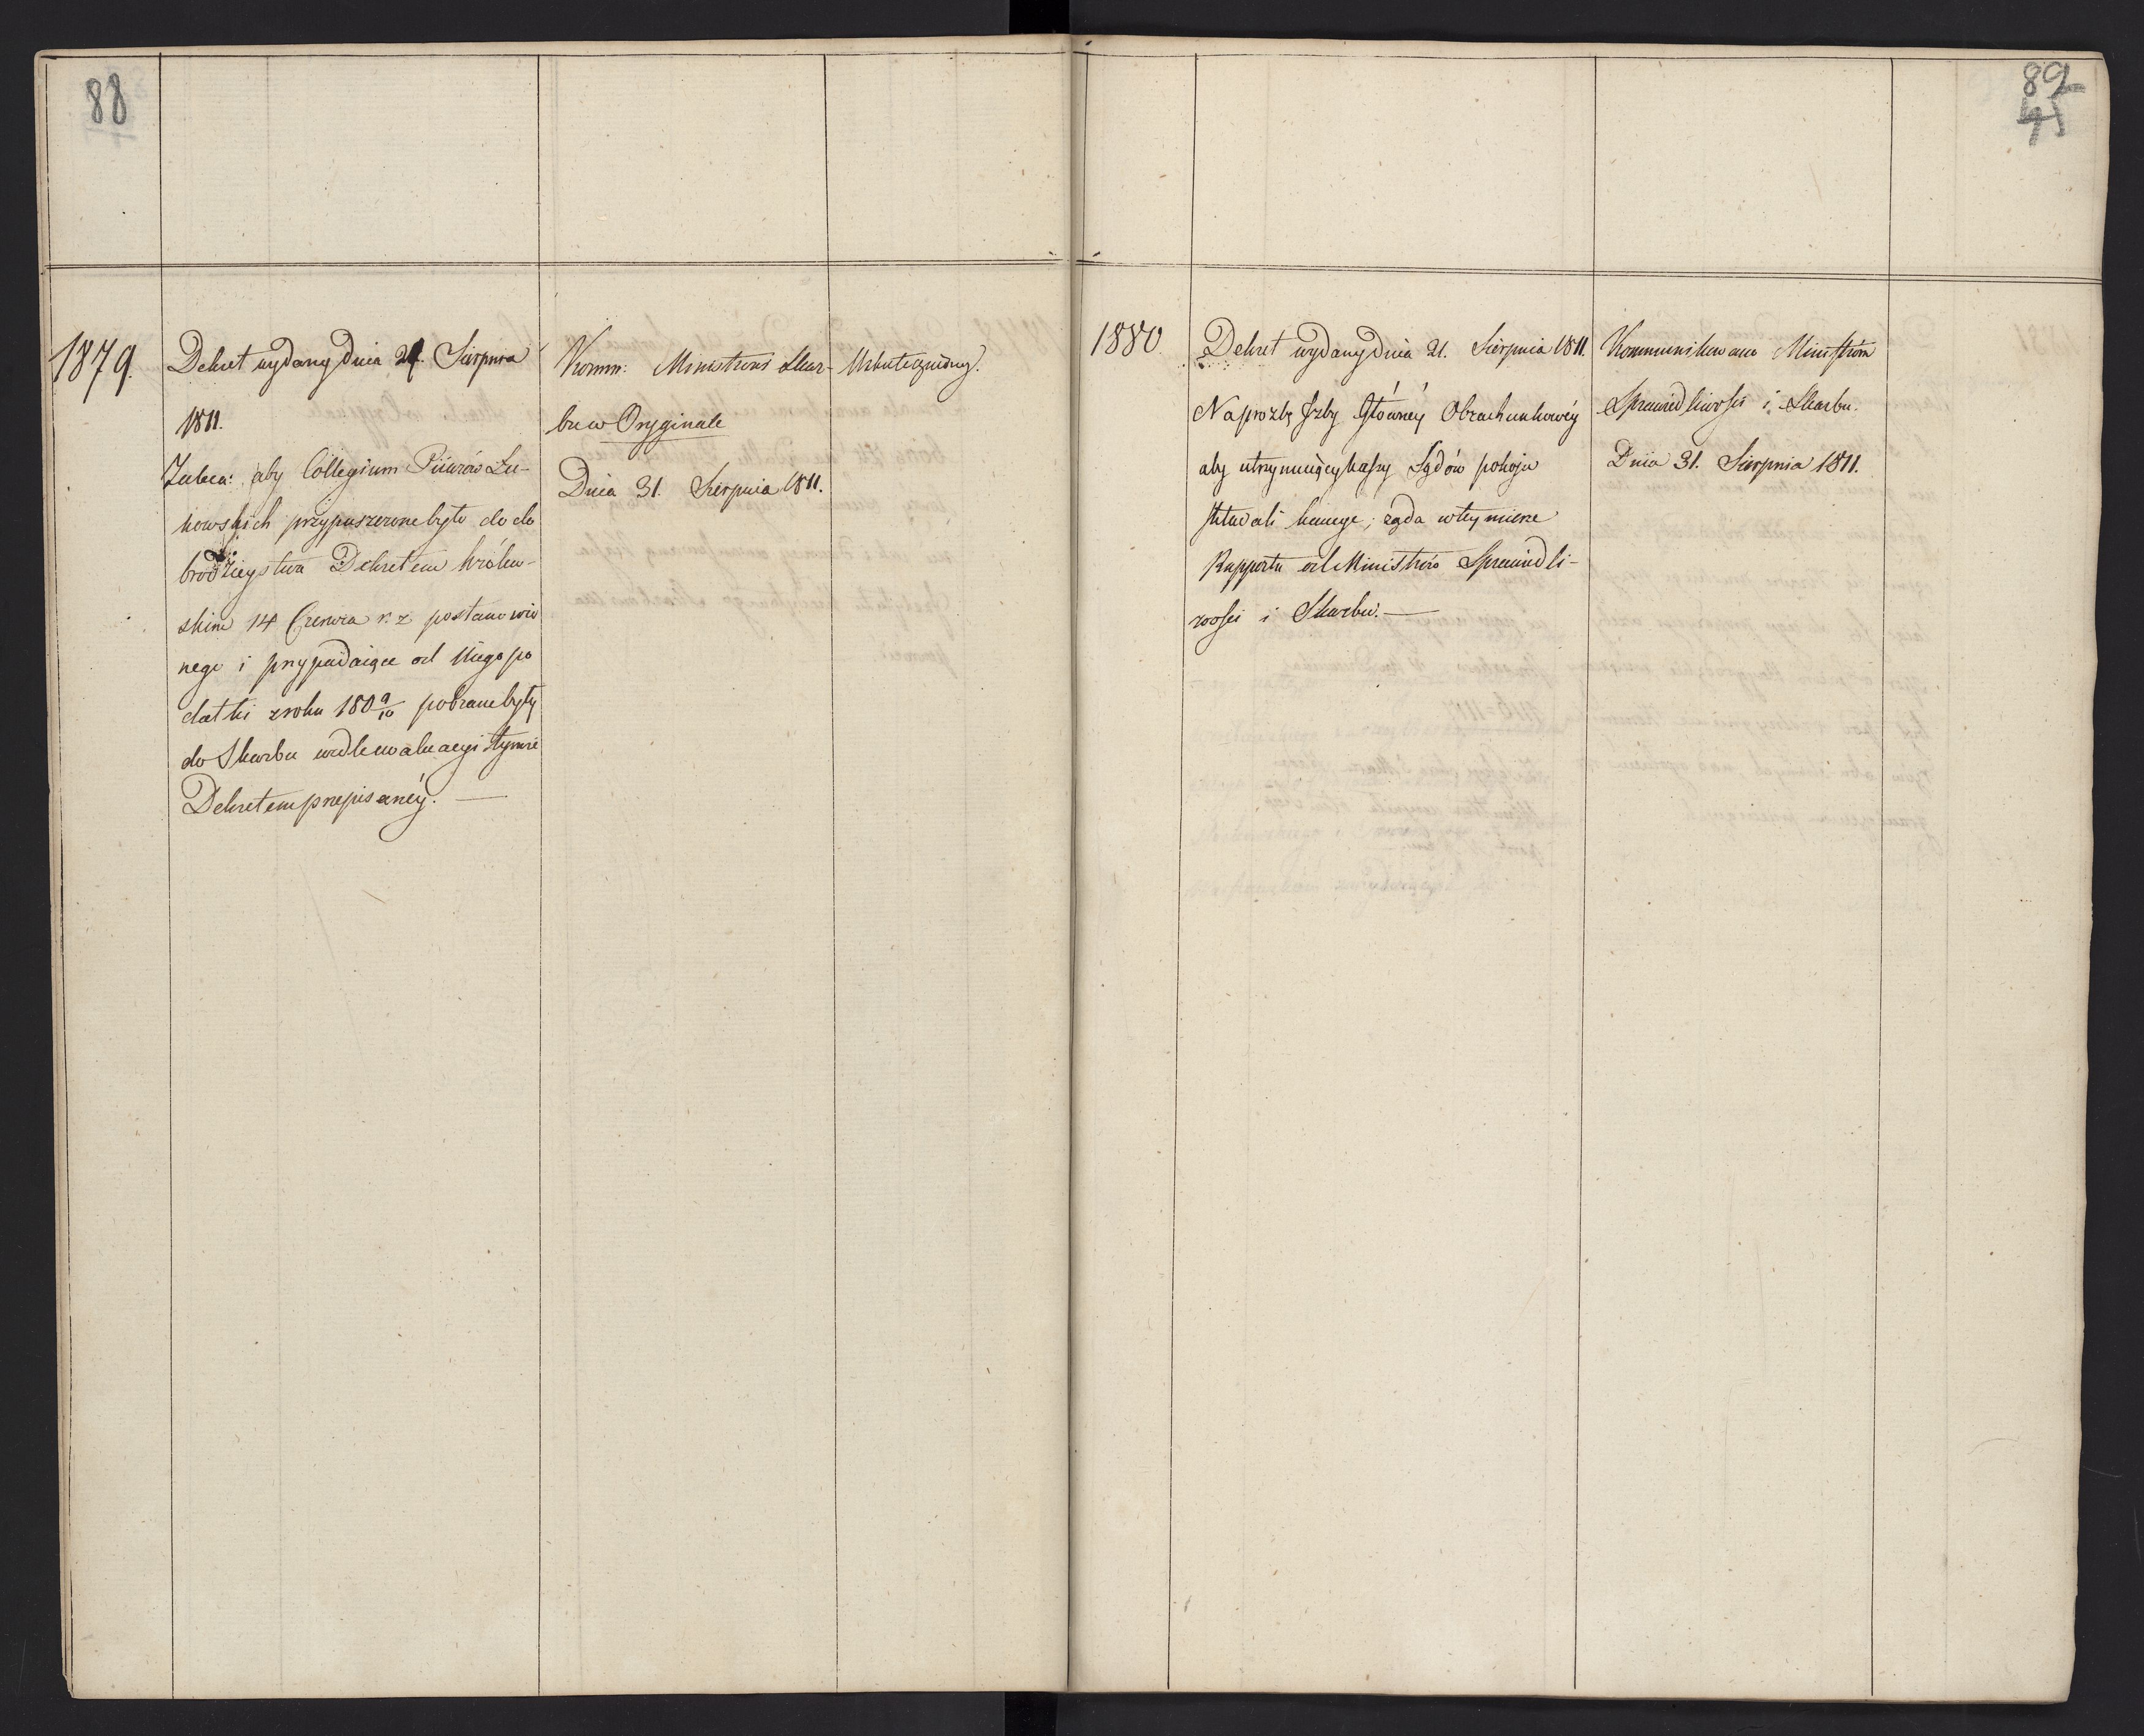 88
1879.
Dekret wydany dnia 21. Sierpnia
1811.
Zaleca: aby Collegium Piiarów Łu-
kowskich przypuszczone było do do
brodzieystwa Dekretem Królew-
skim 14 Czerwca r. z postanowio
nego i przypadaiące od Niego po
datki z roku 180 9/10 pobrane były
do Skarbu wedle ewaluacyi tymże
Dekretem przepisanéy. —
Komm: Ministrowi Skar-
bu w Oryginale
Dnia 31. Sierpnia 1811.
Uskuteczniony.
89
45
1880.
Dekret wydany dnia 21. Sierpnia 1811.
Na prozbę Izby Główney Obrachunkowéy
aby utrzymuiący kassy Sądów pokoju
stawali kaucye; żąda w tey mierze
Rapportu od Ministrów Sprawiedli-
wości i Skarbu. —
Kommunikowano Ministrom
Sprawiedliwości i Skarbu.
Dnia 31. Sierpnia 1811.